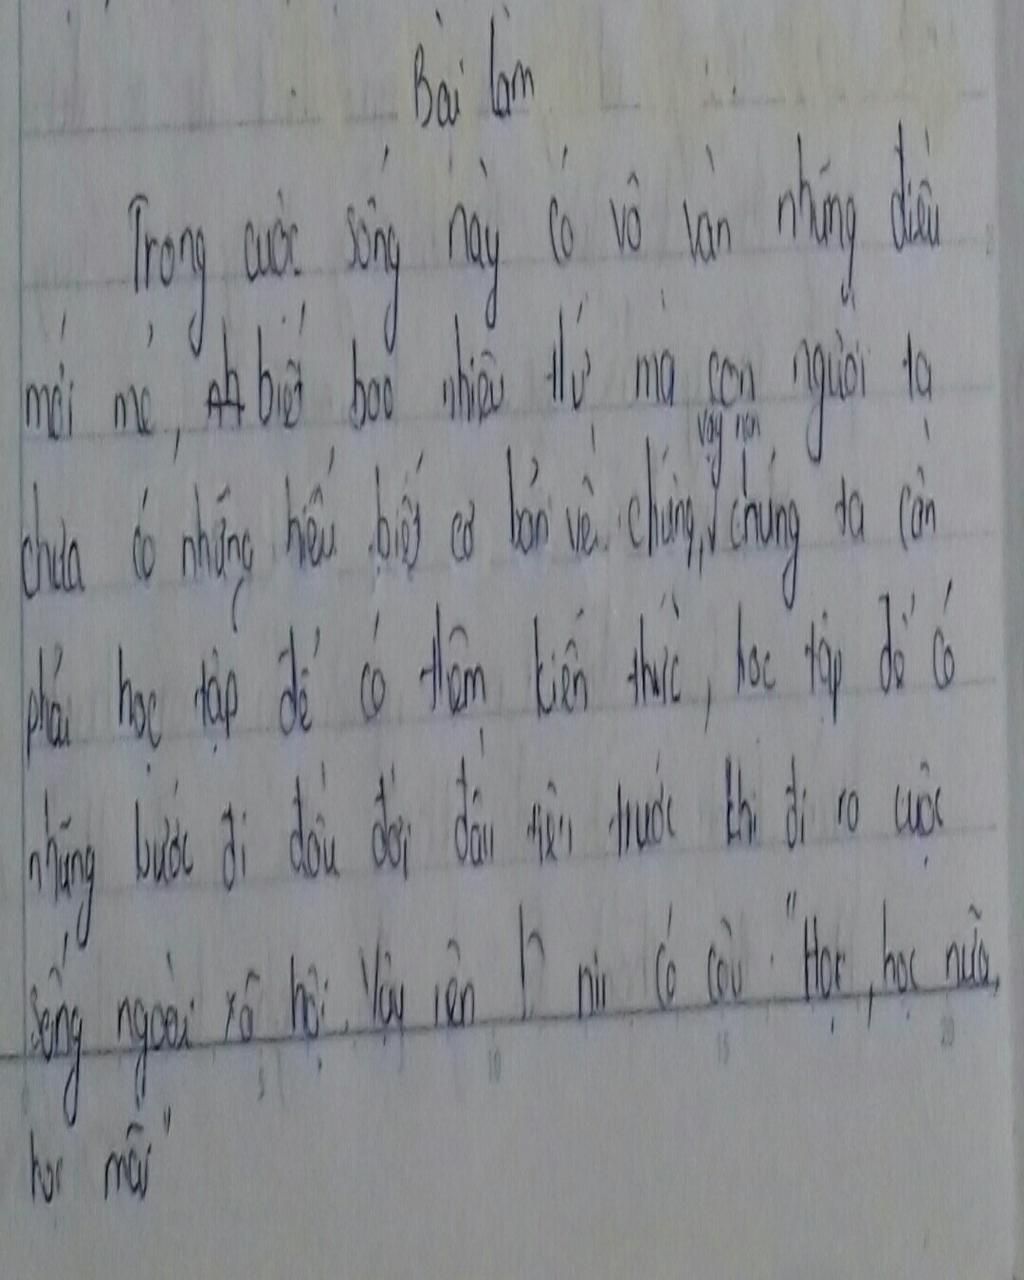 Bài làm
Trong cuộc sống này có vô vàn những điều
mới mẻ, biết bao nhiêu thứ mà con người ta
chưa có những hiểu biết cơ bản về chúng, vậy nên chúng ta cần
phải học tập để có thêm kiến thức, học tập để có
những bước đi đầu đời đầu tiên trước khi đi ra cuộc
sống ngoài xã hội. Vậy nên Lê nin có câu "Học, học nữa,
học mãi"